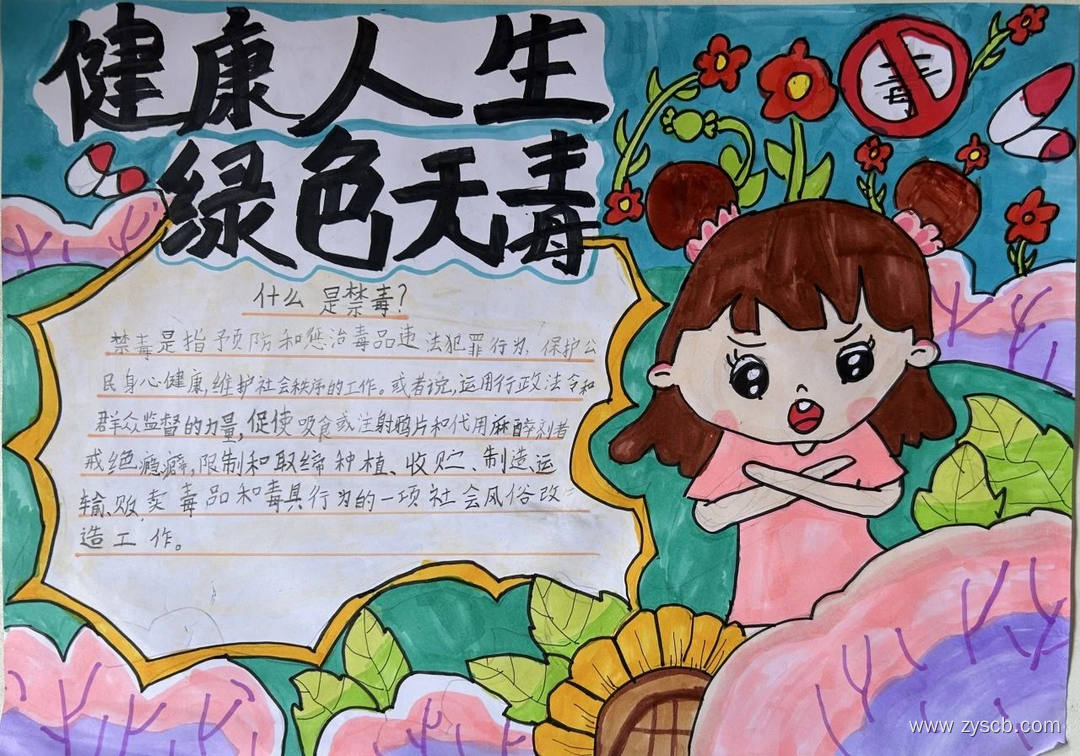 健康人生
绿色无毒
毒
什么 是禁毒?
禁毒是指予预防和惩治毒品违法犯罪行为,保护公
民身心健康,维护社会秩序的工作。或者说,运用行政法令和
群众监督的力量,促使吸食或注射鸦片和代用麻醉剂者
戒绝瘾癖,限制和取缔种植、收贮、制造运
输、贩卖毒品和毒具行为的一项社会风俗改
造工作。
www.zyscb.com